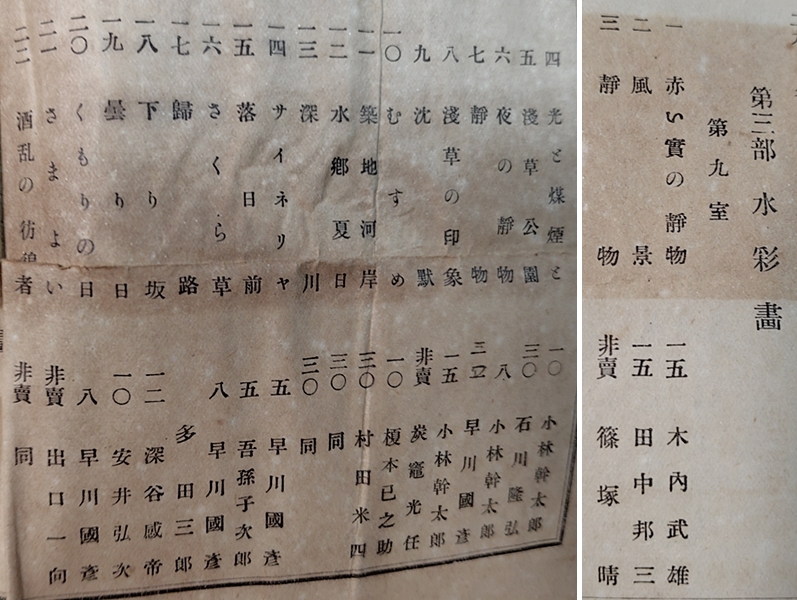 第三部水彩畫
第九室
一 赤い實の靜物 一五 木內武雄
二 風景 一五 田中邦三
三 靜物 非賣 篠塚晴
四 光と煤煙と 一〇 小林幹太郎
五 淺草公園 三〇 石川隆弘
六 夜の靜物 八 小林幹太郎
七 靜物 早川國彥
八 淺草の印象 一五 小林幹太郎
九 沈默 非賣 炭竈光任
一〇 むすめ 一〇 榎本巳之助
一一 築地河岸 三〇 村田米四
一二 水鄕夏日 三〇 同
一三 深川 三〇 同
一四 サイネリヤ 五 早川國彥
一五 落日前 五 吾孫子次郎
一六 さくら草 八 早川國彥
一七 歸路 多田三郎
一八 下り坂 一二 深谷感帝
一九 曇り日 一〇 安井弘次
二〇 くもりの日 八 早川國彥
二一 さまよい 非賣 出口一向
二二 酒乱の彷徨者 非賣 同